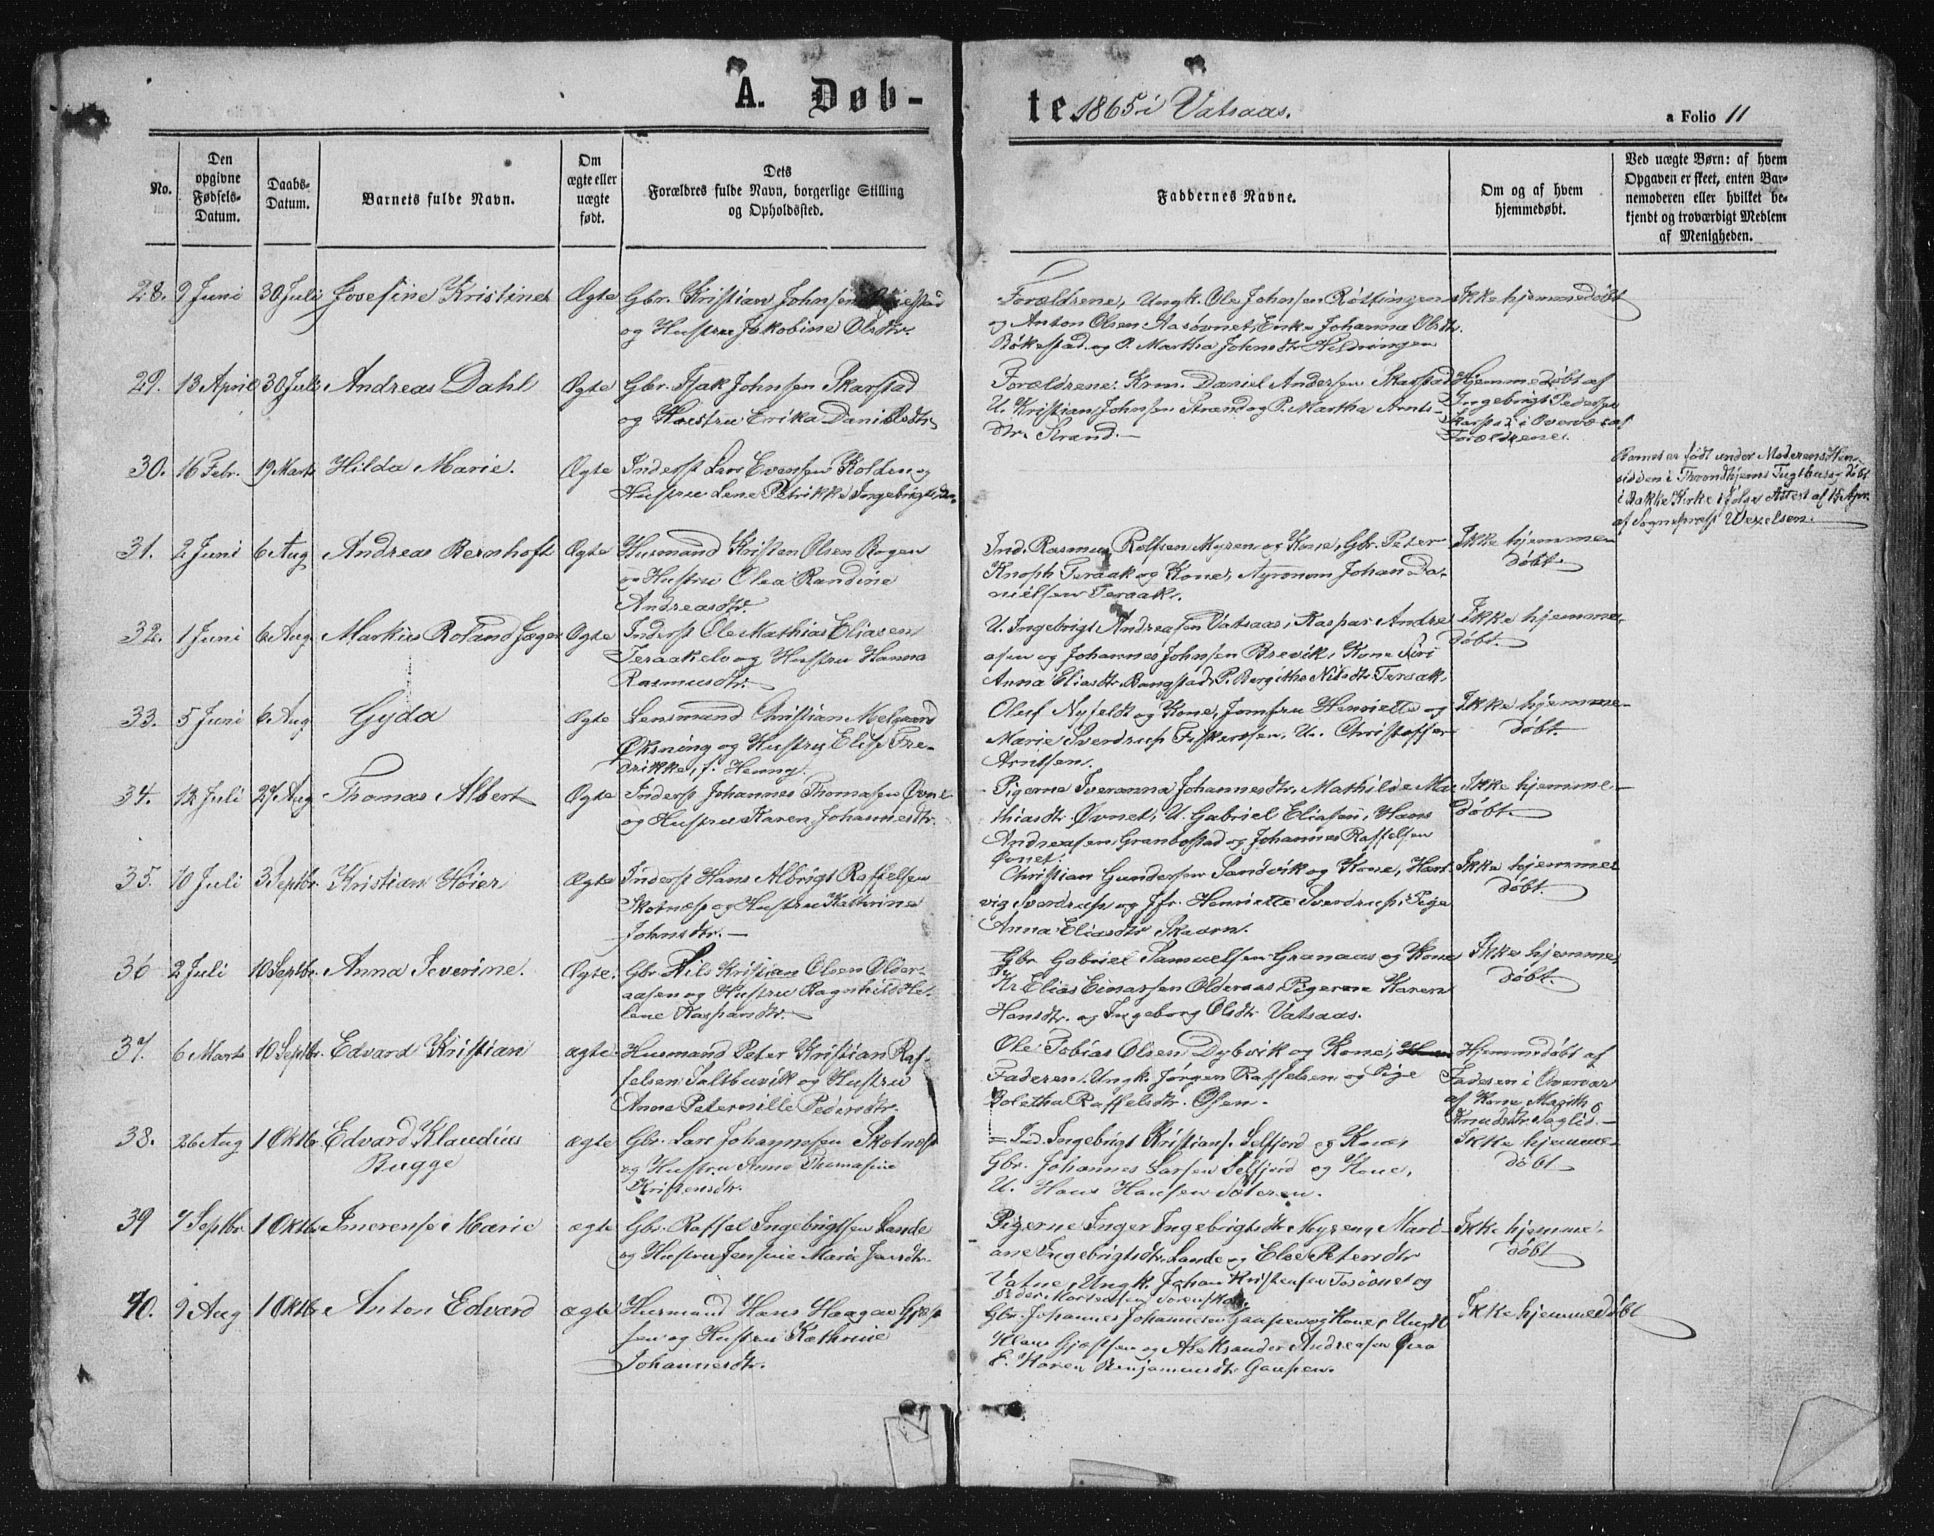 A. Døb-
te. 1865 i Vatsaas.
a Folio 11
No.
Den
opgivne
Fødsels-
Datum.
Daabs-
Datum.
Barnets fulde Navn.
Om
ægte eller
uægte
født.
Dets
Forældres fulde Navn, borgerlige Stilling
og Opholdssted.
Faddernes Navne.
Om og af hvem
hjemmedøbt.
Ved uægte Børn: af hvem
Opgaven er skeet, enten Bar-
nemoderen eller hvilket be-
kjendt og troværdigt Medlem
af Menigheden.
28. 9 Juni 30 Juli Josefine Kristine Ægte Gbr. Kristian Johnsen
og Hustru Jakobine Olsdtr.
Forældrene, Ungk. Ole Johnsen Røttingen
og Anton Olsen Aasøvnet, Enke Johanna Olsdtr.
Bøkestad og P. Martha Johnsdtr Hildringen
Ikke hjemmedøbt
29. 13 April 30 Juli Andreas Dahl Ægte Gbr. Isak Johnsen Skarstad
og Hustru Erika Danielsdtr.
Forældrene. Krm. Daniel Andersen Skarstad
U. Kristian Johnsen Strand og P. Martha Arnts-
dtr. Strand.
Hjemmedøbt af
Ingebrigt Pedersen
Skarpstd i Overvær af
Forældrene.
30. 16 Febr. 19 Marts Hilda Marie. Ægte Inderst Lars Evensen Kolden og
Hustru Lene Petrikke Ingebrigtsdtr.
Barnet er født under Moderens Hen-
sidden i Throndhjems Tugthus og døbt
i Bakke Kirke ifølge Attest af 15 Apr.
af Sognepræst Wexelsen.
31. 2 Juni 6 Aug Andreas Bernhoft Ægte Husmand Kristen Olsen Rogen
og Hustru Olea Randine
Andreasdtr.
Ind. Rasmus Rolfsen Myren og Kone, Gbr. Peter
Knoph Teraak og Kone, Agronom Johan Da-
nielsen Teraak.
Ikke hjemme
døbt.
32. 1 Juni 6 Aug. Markus Roland Jæger Ægte Inderst Ole Mathias Eliasen
Teraakelv og Hustru Hanna
Rasmusdtr.
U. Ingebrigt Andreasen Vatsaas, Kaspar Andre
asen og Johannes Johnsen Brevik, Kone Siri
Anna Eliasdtr. Bangstad, P. Bergithe Nilsdtr. Teraak.
Ikke hjemme
døbt.
33. 5 Juni 6 Aug. Gyda Ægte Lensmand Christian Melgaard
Øksning og Hustru Elise Fre-
drikke, f. Henny.
Oluf Nyfeldt og Kone, Jomfru Henriette og
Marie Sverdrup Fiskerosen, U. Christoffer
Arntsen.
Ikke hjemme-
døbt.
34. 12 Juli 27 Aug Thomas Albert Ægte Inderst Johannes Thomasen Øvnet
og Hustru Karen Johannesdtr.
Pigerne Iveranna Johannesdtr. Mathilde Ma-
thiasdtr. Øvnet, U. Gabriel Eliasen, Hans
Andreasen, Granbostad og Johannes Raffelsen
Øvnet.
Ikke hjemme-
døbt.
35. 10 Juli 3 Septbr. Kristian Høier Ægte Inderst Hans Albrigt Raffelsen
Skotnes og Hustru Kathrine
Johnsdtr.
Christian Gundersen Sandvik og Kone, Hart-
vig Sverdrup og Jfr. Henriette Sverdrup, Pige
Anna Eliasdtr. Skaarn.
Ikke hjemme
døbt.
36 2 Juli 10 Septbr. Anna Severine. Ægte. Gbr. Nils Kristian Olsen Older-
aasen og Hustru Ragnhild He-
lene Kaspardtr.
Gbr. Gabriel Samuelsen Granaas og Kone
Kr. Elias Einarsen Olderaas, Pigerne Karen
Hansdtr. og Ingeborg Olsdtr Vatsaas.
Ikke hjemme
døbt.
37. 6 Marts 10 Septbr. Edvard Kristian ægte Husmand Peter Kristian Raf-
felsen Saltbuvik og Hustru
Anne Peternille Pedersdtr.
Ole Tobias Olsen Dybvik og Kone,
Faderen. Ungk. Jørgen Raffelsen og Pige
Boletha Raffelsdtr. Osen.
Hjemmedøbt af
Faderen i Overvær
af Kone Magith
Knudsdtr.
38. 26 Aug 1 Oktbr. Edvard Klaudius
Bugge ægte Gbr. Lars Johannesen Skotnes
og Hustru Anne Thomasine
Kristensdtr.
Ind. Ingebrigt Kristians. Selfjord og Kone,
Gbr. Johannes Larsen Selfjord og Kone,
U. Hans Hansen
Ikke hjemme-
døbt.
39 7 Septbr 1 Oktbr. Imerense Marie ægte Gbr. Raffel Ingebrigtsen Lande
og Hustru Jensine Marie Jensdtr.
Pigerne Inger Ingebrigtsdtr. Myren, Mari-
ane Ingebrigtsdtr. Lande og Else Petersdtr
Vatne, Ungk. Johan Kristensen Torsøvnet og
Peder Mortensen
Ikke hjemme
døbt
40. 9 Aug 1 Oktbr. Anton Edvard ægte Husmand Hans Haagan
sen og Hustru Kathrine
Johannesdtr.
Gbr. Johannes Johannesen Gaupen og Kone, Ungk
Klaus og Aleksander Andreasen
E. Karen Benjaminsdtr. Gaupen.
Ikke hjemmedøbt